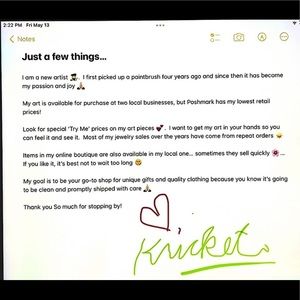 2:22 PM Fri May 13
Notes
Just a few things...
I am a new artist 👩🏻‍🎨. I first picked up a paintbrush four years ago and since then it has become
my passion and joy 🙏🏻
My art is available for purchase at two local businesses, but Poshmark has my lowest retail
prices!
Look for special 'Try Me' prices on my art pieces 💕. I want to get my art in your hands so you
can feel it and see it. Most of my jewelry sales over the years have come from repeat orders 😊
Items in my online boutique are also available in my local one... sometimes they sell quickly 🌺...
If you like it, it's best not to wait too long 😊
My goal is to be your go-to shop for unique gifts and quality clothing because you know it's going
to be clean and promptly shipped with care 🙏🏻
Thank you So much for stopping by!
Kricket